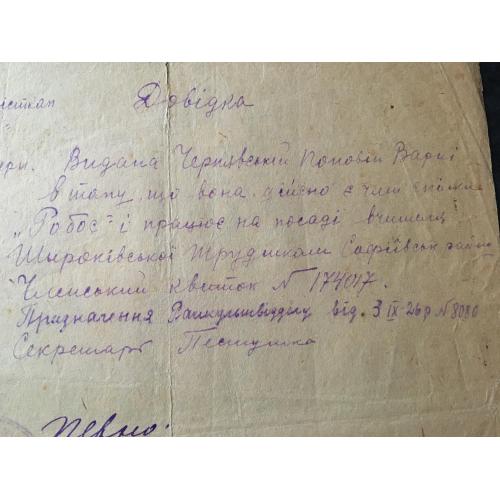 Довідка
Видана Чернявській Поповій Варі
в тому, що вона дійсно є член спілки
„Робос" і працює на посаді вчительк
Широківської Трудшколи Софіївськ району
Членський квиток N 174017.
Призначення Райкультвідділу від. 3 IX-26 р N 8080
Секретарь Пестушко
Певно.